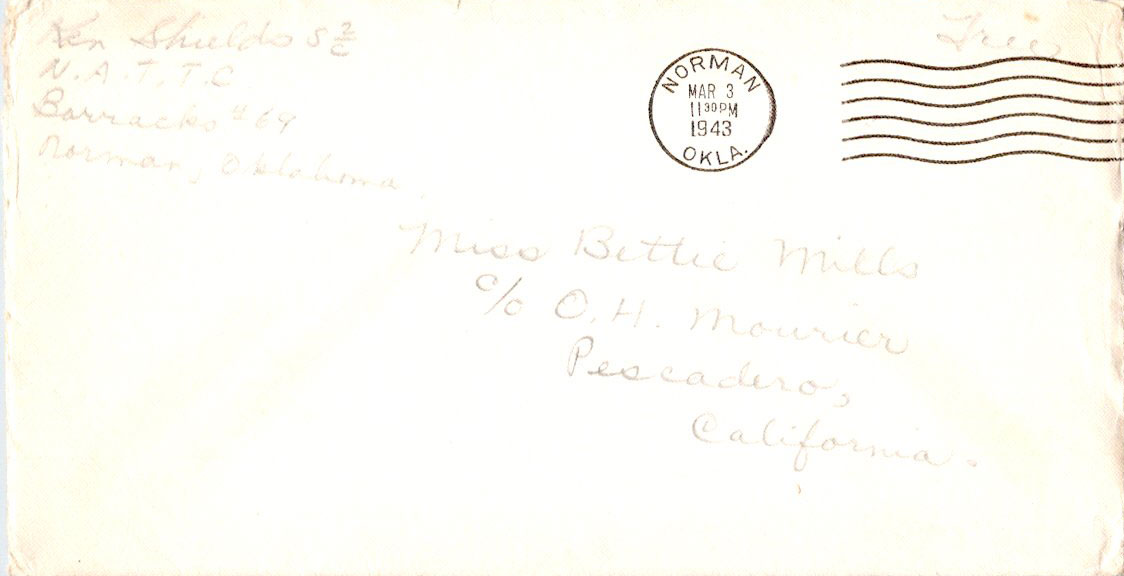 Ken Shields S 2/c
N.A.T.T.C.
Barracks #64
Norman, Oklahoma
Free
NORMAN
MAR 3
11 30 PM
1943
OKLA.
Miss Bettie Mills
c/o O.H. Mourier
Pescadero,
California.